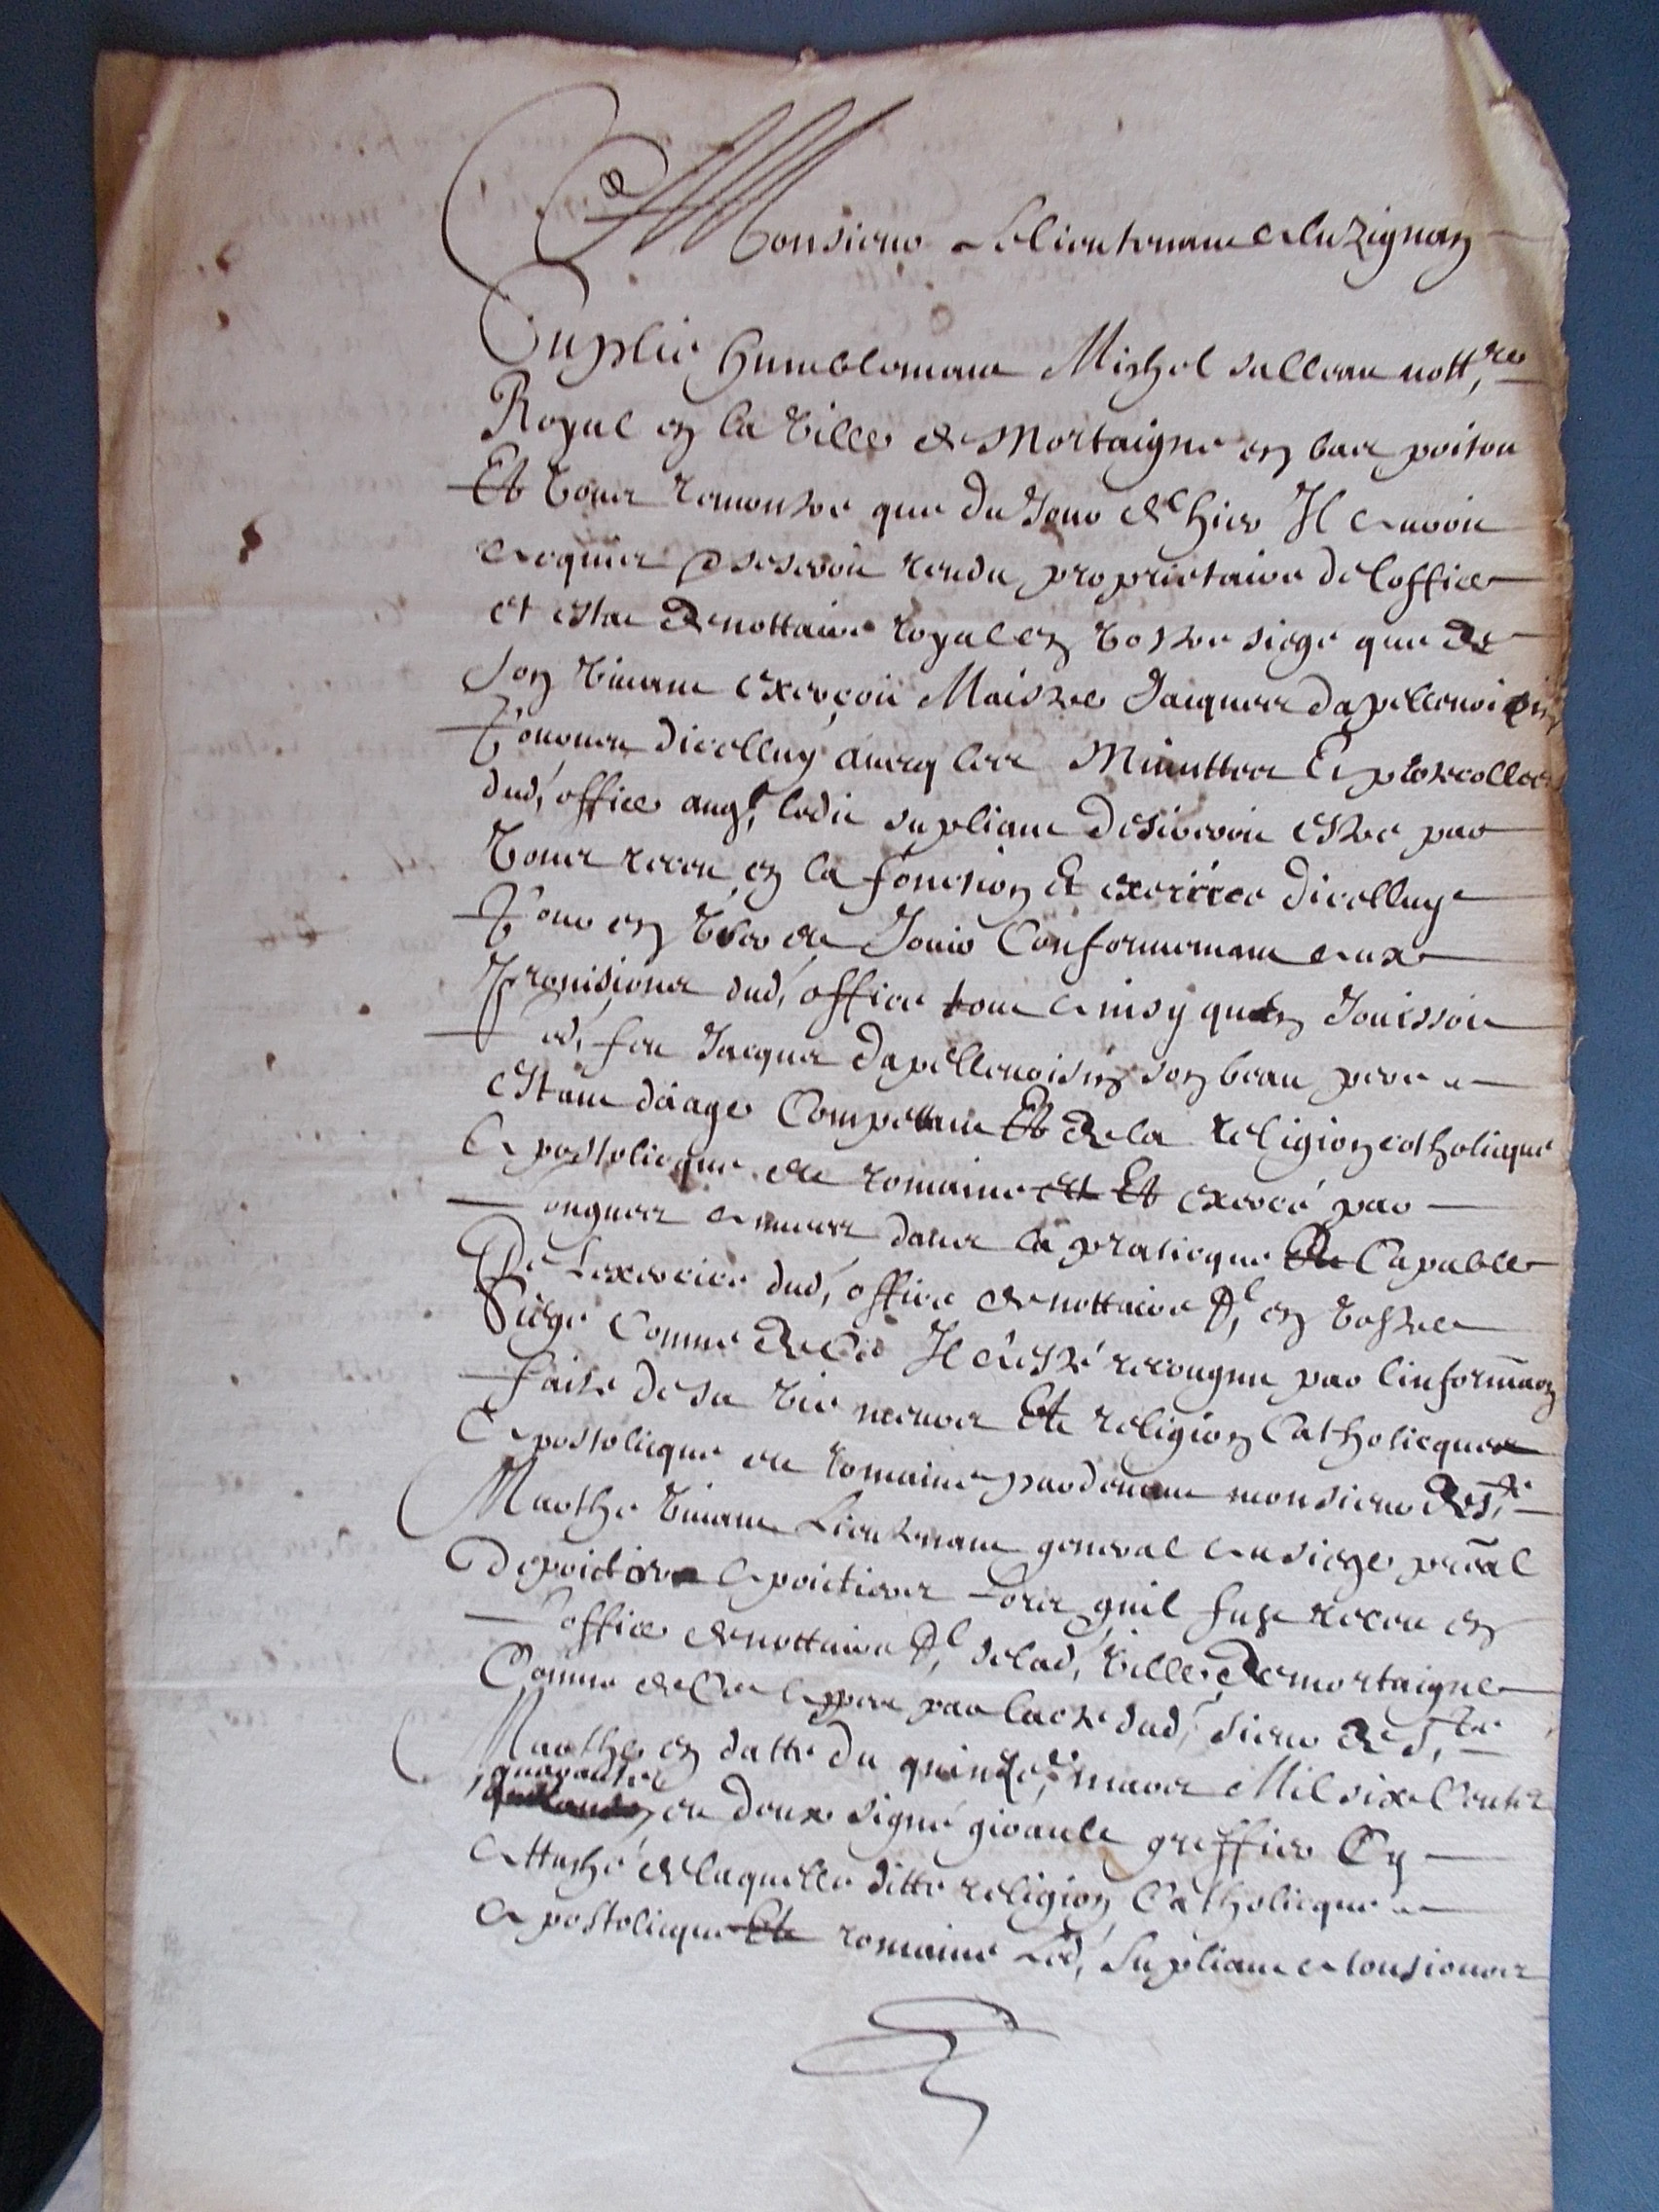 Monsieur Le lieutenant a luzignan
Suplie humblement Michel salleau nott.re
Royal en la ville de Mortaigne en bas poitou
Et vous remonstre que du Jour de hier Il auroit
acquis & se seroit rendu proprietaire de loffice
et estat de nottaire royal en vostre siege que de
son vivant exerçoit Maistre Jacques dapellevoisin
Ensemble dicelluy avecq les Minuttes Et protecolles
dud, office auql, ledit supliant desireroit estre par
vous receu en la fonction Et exercice dicelluy
Pour en user et Jouir Conformement aux
provisions dud, office tout ainsy quen Jouissoit
led, feu Jacques dapellevoisin son beau pere
estant daage Competant Et de la religion catholicque
apostolicque et romaine Et exercé par
longues annees dans la praticque Capable
De Lexercice dud, office de nottaire Rl, en vostre
Siege Comme de Ce Il a esté recougnu par linformaon
faite de sa vie meurs Et religion Catholicque
apostolicque et romaine pardevant monsieur de Ste
Marthe vivant Lieutenant general au siege presal
a poictiers Lors quil fust receu en
Loffice de nottaire Rl, de lad, ville de mortaigne
Comme de Ce apert par lacte dud, sieur de Ste
Marthe en datte du quinze, mars Mil six Cents
quarante
et deux signé girault greffier Cy
attaché de laquelle ditte religion Catholicque
apostolicque Et romaine Led, supliant a tousjours